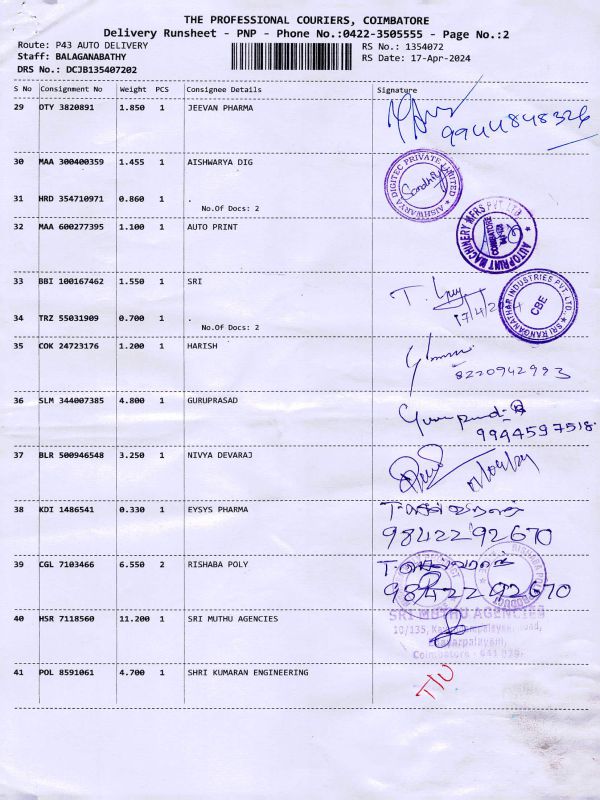 THE PROFESSIONAL COURIERS, COIMBATORE
Delivery Runsheet - PNP - Phone No.:0422-3505555 - Page No.:2
Route: P43 AUTO DELIVERY RS No.: 1354072
Staff: BALAGANABATHY RS Date: 17-Apr-2024
DRS No.: DCJB135407202
S No Consignment No Weight PCS Consignee Details Signature
29 DTY 3820891 1.850 1 JEEVAN PHARMA
9944848326
30 MAA 300400359 1.455 1 AISHWARYA DIG
AISHWARYA DIGITEC PRIVATE LIMITED
Sandhiya
31 HRD 354710971 0.860 1 .
No.Of Docs: 2
32 MAA 600277395 1.100 1 AUTO PRINT
AUTOPRINT MACHINERY MFRS PVT LTD
33 BBI 100167462 1.550 1 SRI
SRI RANGANATHAR INDUSTRIES PVT LTD.,
CBE
17/4/2024
34 TRZ 55031909 0.700 1 .
No.Of Docs: 2
35 COK 24723176 1.200 1 HARISH
8220942993
36 SLM 344007385 4.800 1 GURUPRASAD
9944597518.
37 BLR 500946548 3.250 1 NIVYA DEVARAJ
38 KDI 1486541 0.330 1 EYSYS PHARMA
98422 92670
39 CGL 7103466 6.550 2 RISHABA POLY
98422 92670
40 HSR 7118560 11.200 1 SRI MUTHU AGENCIES
SRI MUTHU AGENCIES
41 POL 8591061 4.700 1 SHRI KUMARAN ENGINEERING
T/U